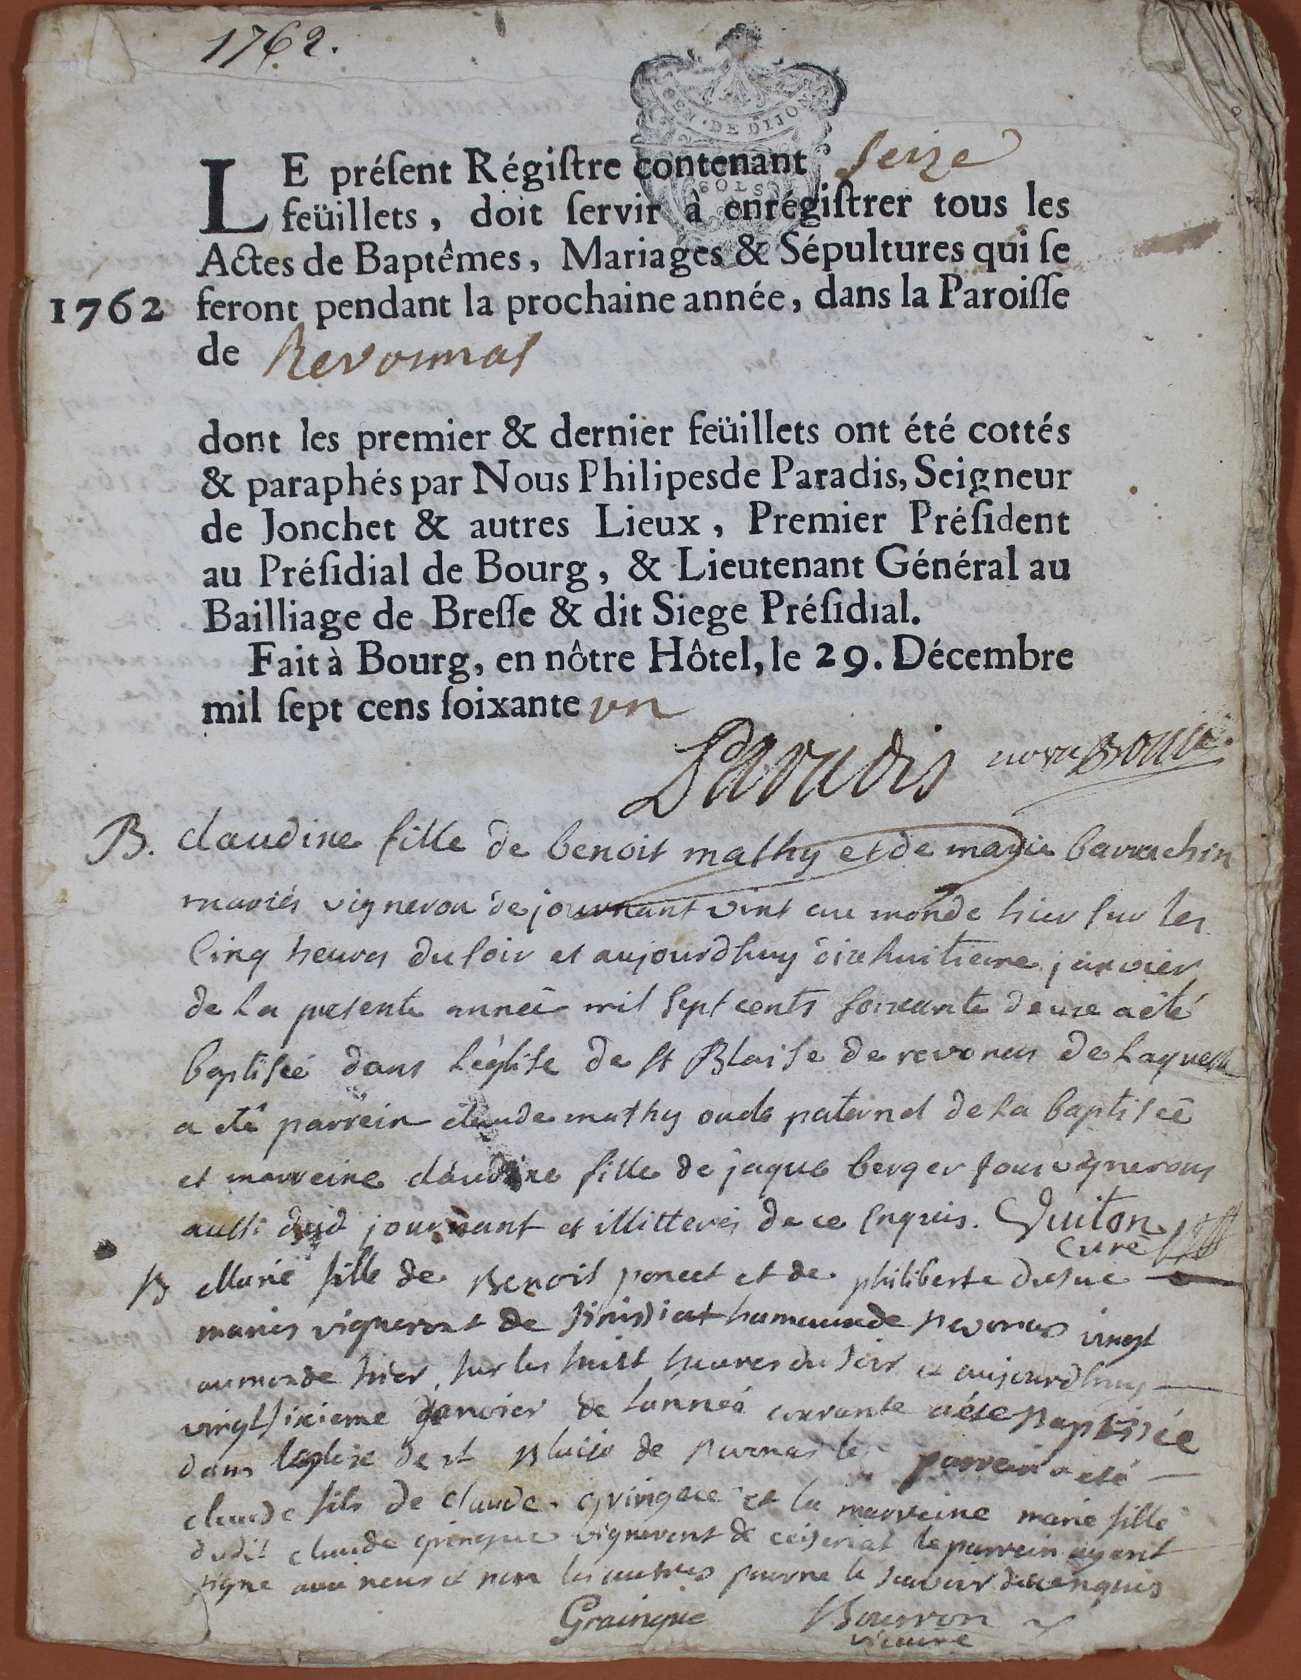 1762.
GEN. DE DIJON
SOLS
LE préſent Régiſtre contenant Seize
feüillets, doit ſervir à enrégiſtrer tous les
Actes de Baptêmes, Mariages & Sépultures qui ſe
1762 feront pendant la prochaine année, dans la Paroiſſe
de Revonnas
dont les premier & dernier feüillets ont été cottés
& paraphés par Nous Philipes de Paradis, Seigneur
de Jonchet & autres Lieux, Premier Préſident
au Préſidial de Bourg, & Lieutenant Général au
Bailliage de Breſſe & dit Siege Préſidial.
Fait à Bourg, en nôtre Hôtel, le 29. Décembre
mil ſept cens ſoixante un
Paradis
B. claudine fille de benoit mathy et de marie barrachin
mariés vigneron de journant vint au monde hier sur les
cinq heures du soir et aujourdhuy dixhuitieme janvier
de la presente année mil sept cents soixante deux a été
baptisée dans l'église de st Blaise de revonas de laquelle
a eté parrein claude mathy oncle paternel de la baptisée
et marreine claudine fille de jaque berger tous vignerons
aussi dud journant et illitteres de ce enquis. Guiton
curé
B Marie fille de Benoit poncet et de philiberte
mariés vigneront de hameau de revonas vingt
au monde hier sur les huit heures du soir et aujourdhuy
vingt sixieme janvier de lannée courante a été Baptisée
dans leglise de st Blaise de revonas le parrein a eté
claude fils de claude gringue et la marreine marie fille
dudit claude gringue vigneront de ceiseriat le parrein ayant
signe avec nous et non les autres pour ne le savoir de ce enquis
Grainque Bourron
vicaire